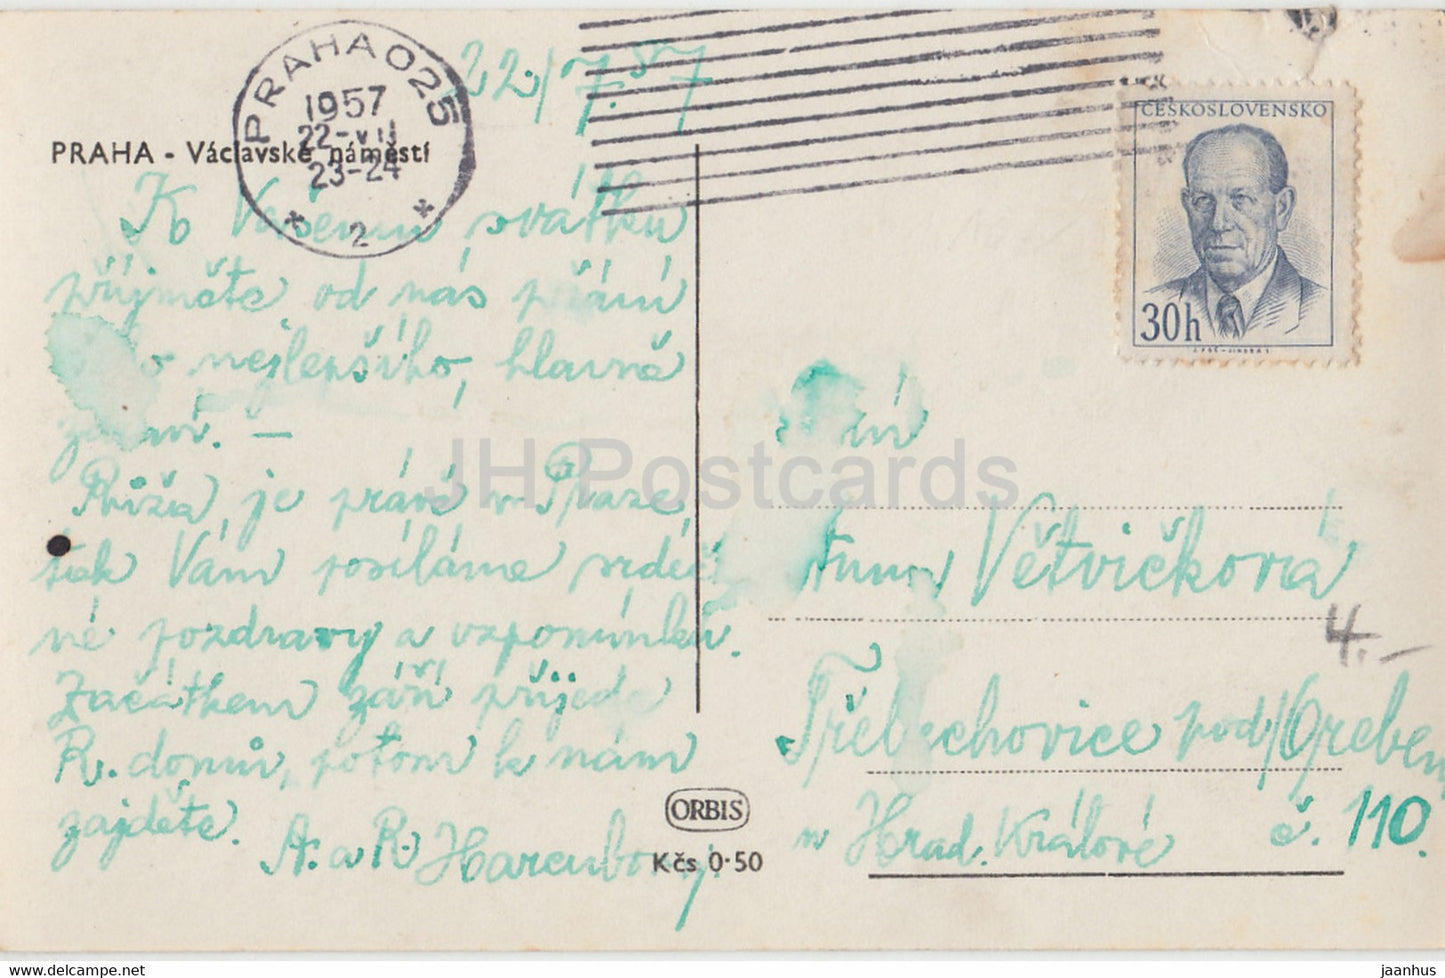 PRAHA 025
1957
22-VII
23-24
2
22./7.57
PRAHA - Václavské náměstí
ČESKOSLOVENSKO
30h
K Vašemu svátku
přijměte od nás přání
nejlepšího, hlavně
zdraví. —
Růža je právě v Praze,
tak Vám posíláme srdeč
né pozdravy a vzpomínku.
Začátkem září přijede
R. domů, potom k nám
zajděte.
A. a R.
Paní
Anna Větvičková
4.-
Třebechovice pod/Oreben
u Hrad. Králové č. 110.
ORBIS
Kčs 0·50
JH Postcards
jaanhus